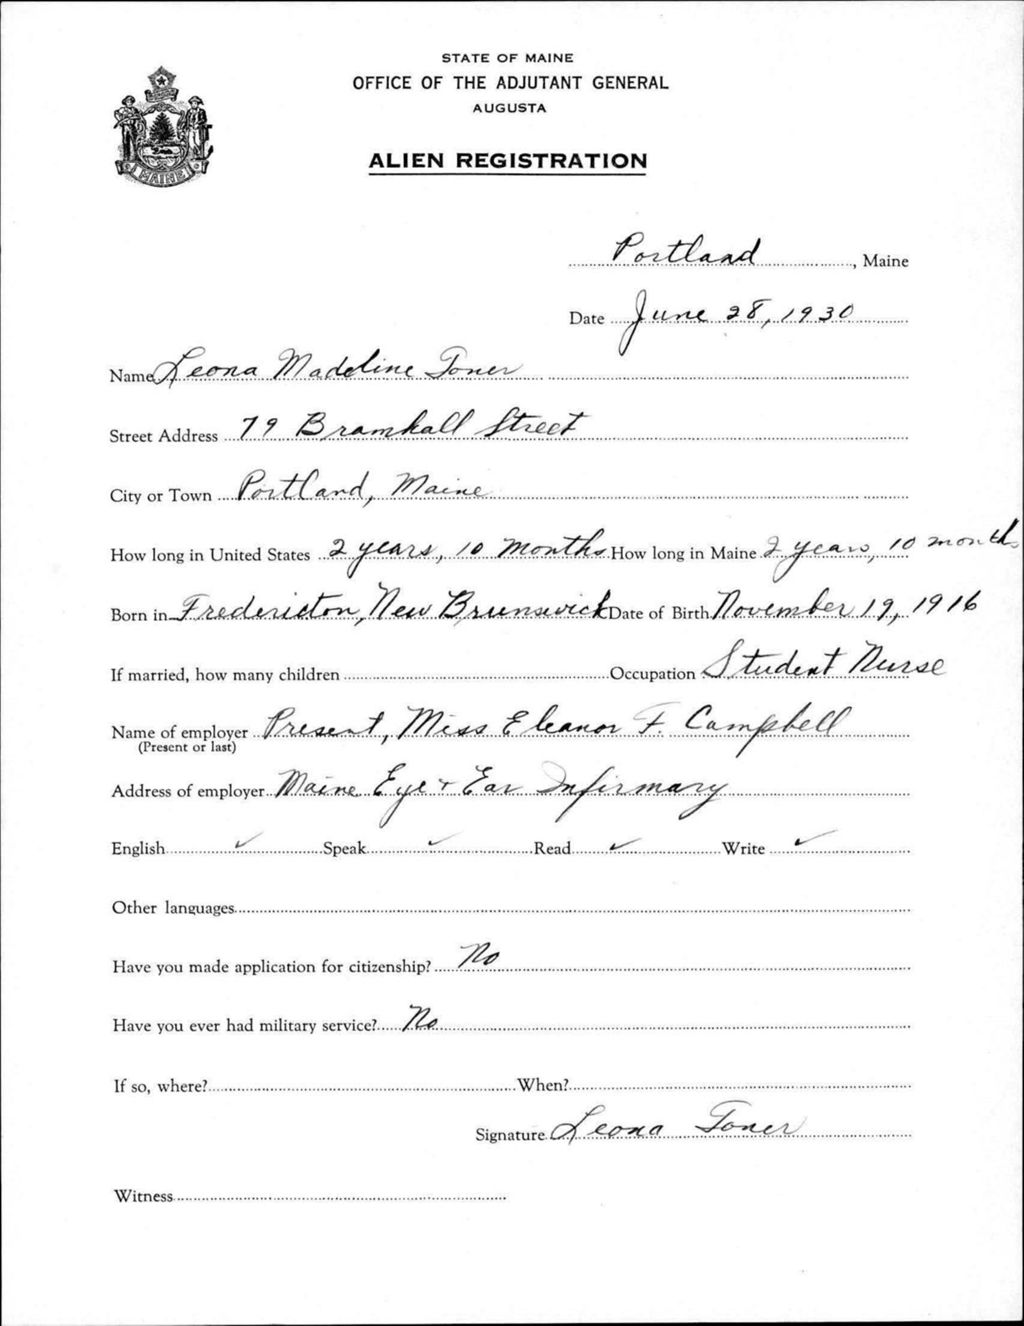 STATE OF MAINE
OFFICE OF THE ADJUTANT GENERAL
AUGUSTA
MAINE
ALIEN REGISTRATION
Portland, Maine
Date June 28, 1930
Name Leona Madeline Toner
Street Address 79 Bramhall Street
City or Town Portland, Maine
How long in United States 2 years, 10 months How long in Maine 2 years, 10 months
Born in Fredericton, New Brunswick Date of Birth November 19, 1916
If married, how many children Occupation Student Nurse
Name of employer Present, Miss Eleanor F. Campbell
(Present or last)
Address of employer Maine Eye + Ear Infirmary
English ✓ Speak ✓ Read ✓ Write ✓
Other languages
Have you made application for citizenship? No
Have you ever had military service? No
If so, where? When?
Signature Leona Toner
Witness